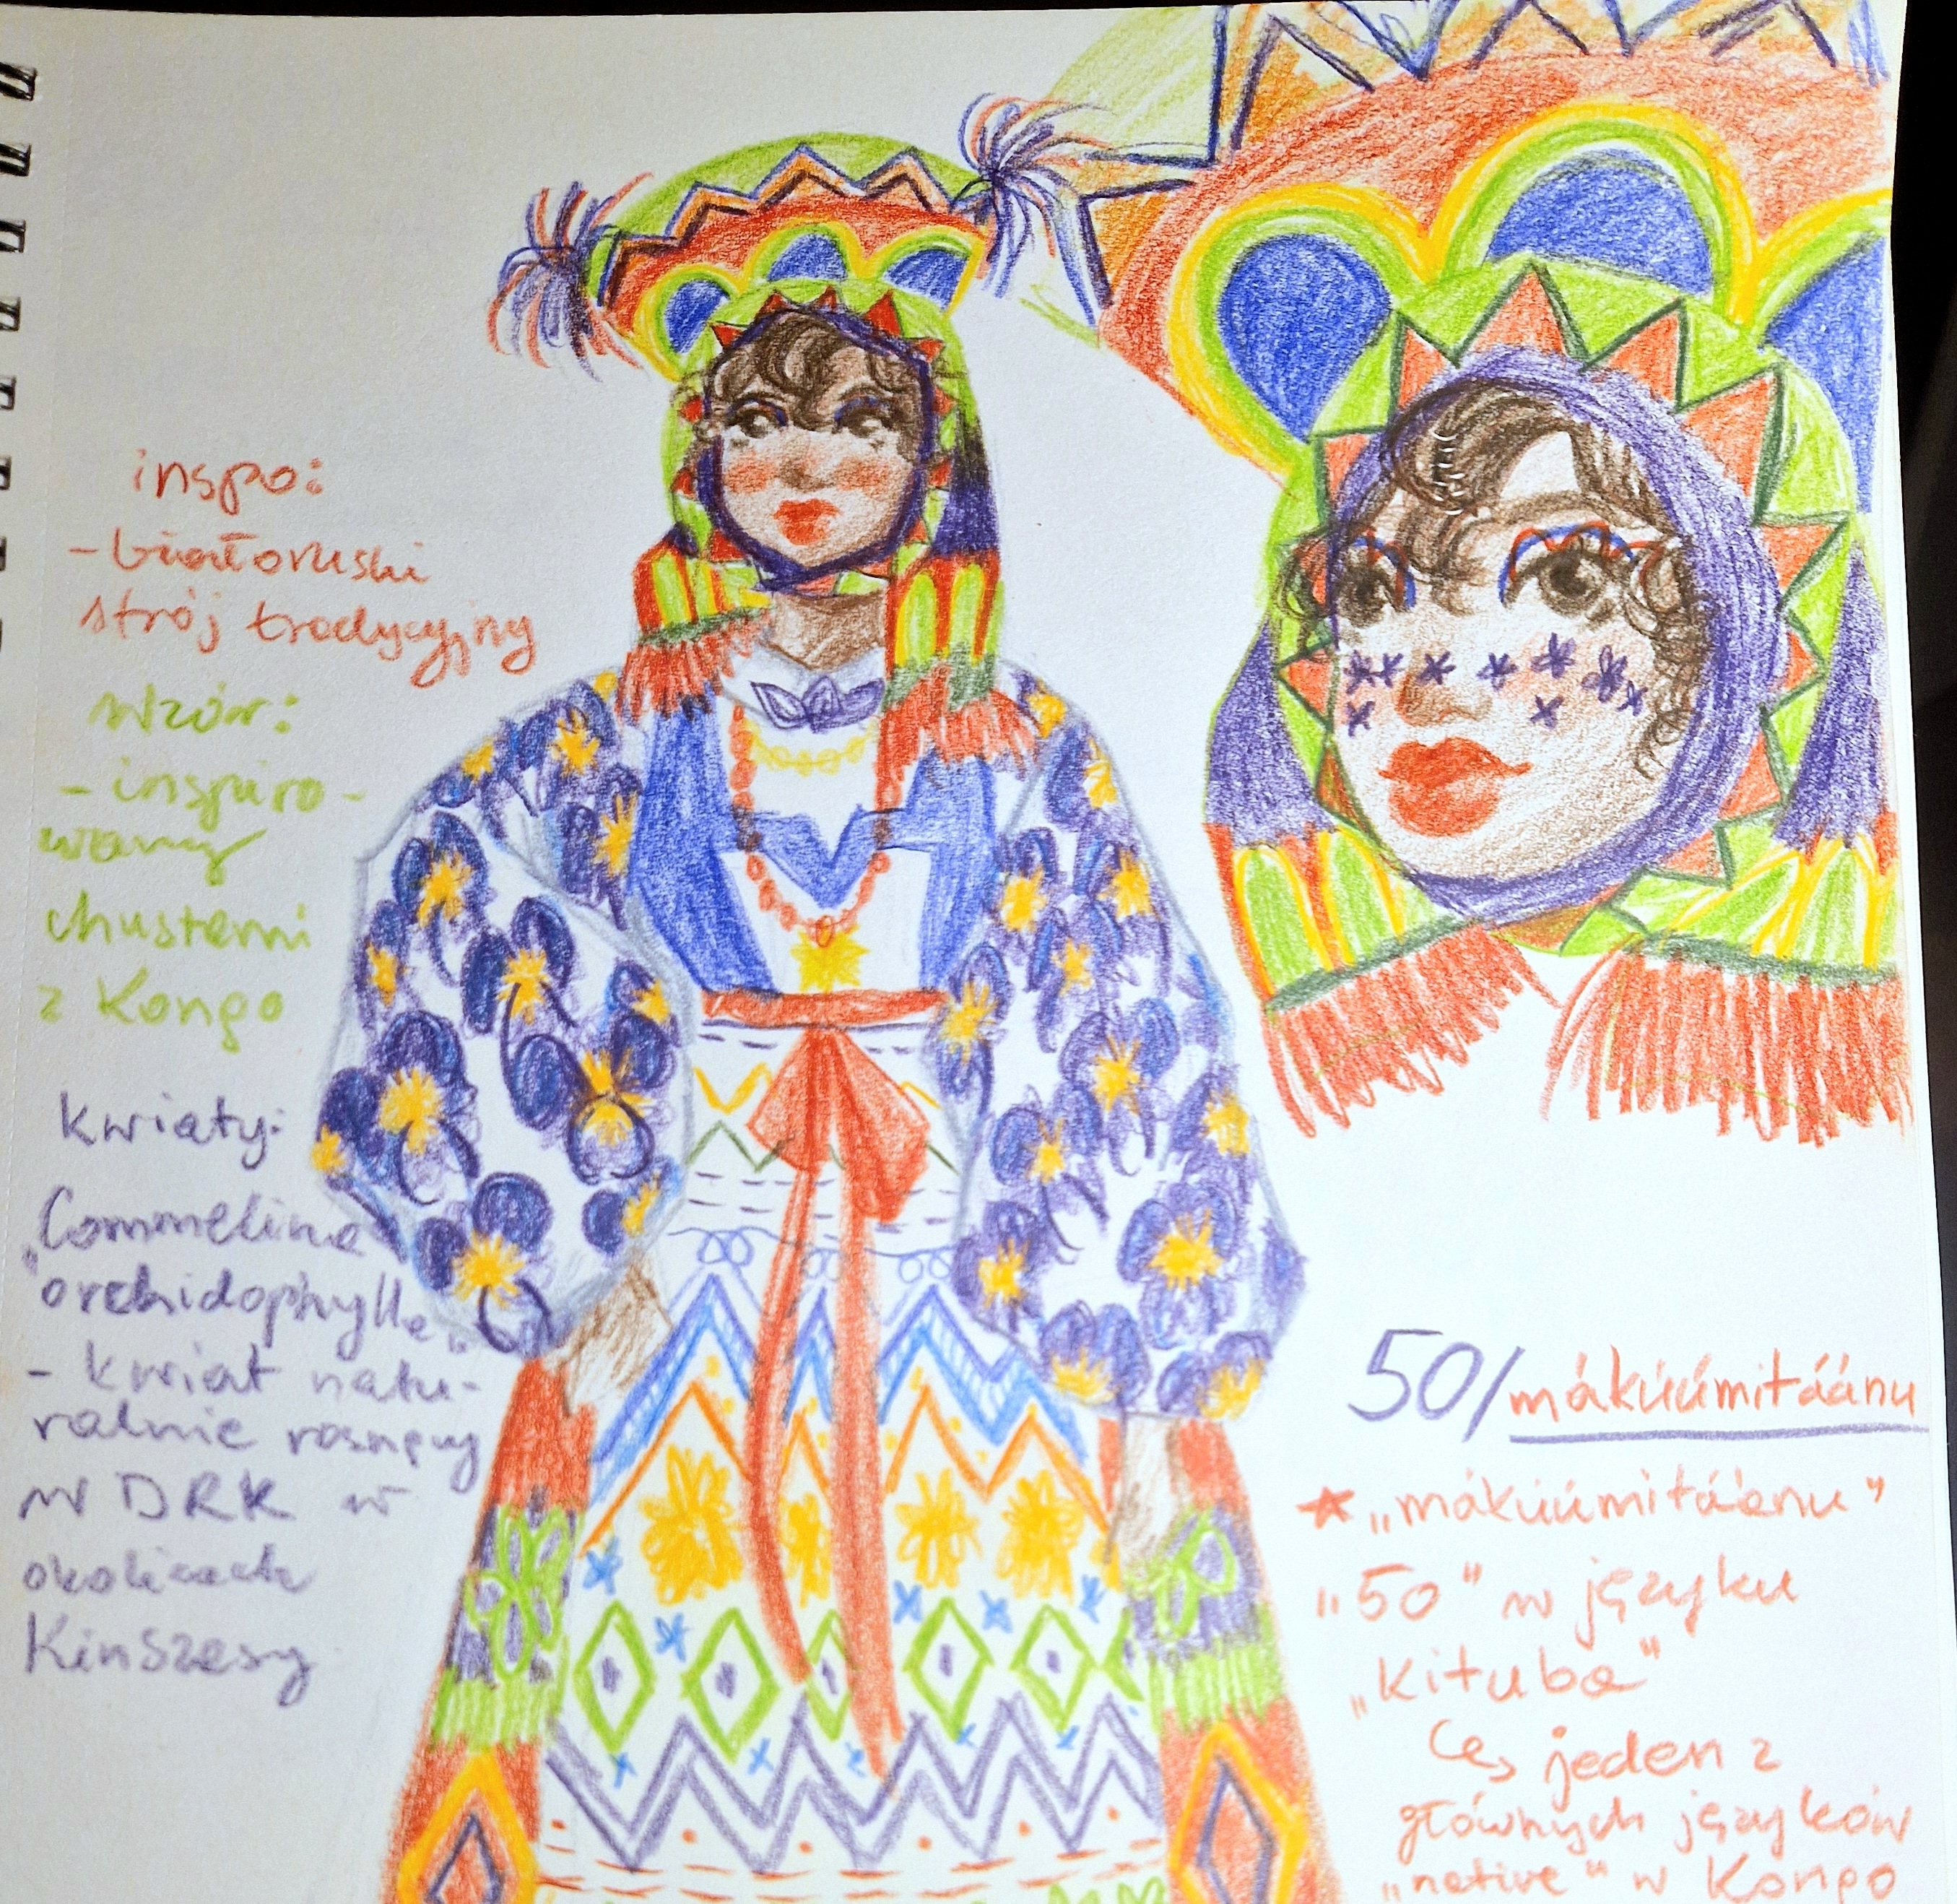 inspo:
- białoruski
strój tradycyjny
wzór:
- inspiro-
wany
chustami
z Kongo
kwiaty:
"Commelina
orchidophylla"
- kwiat natu-
ralnie rosnący
w DRK w
okolicach
Kinszasy
50/mákúúmitáánu
* „mákúúmitáánu"
„50" w języku
„kituba"
jeden z
głównych języków
„native" w Kongo